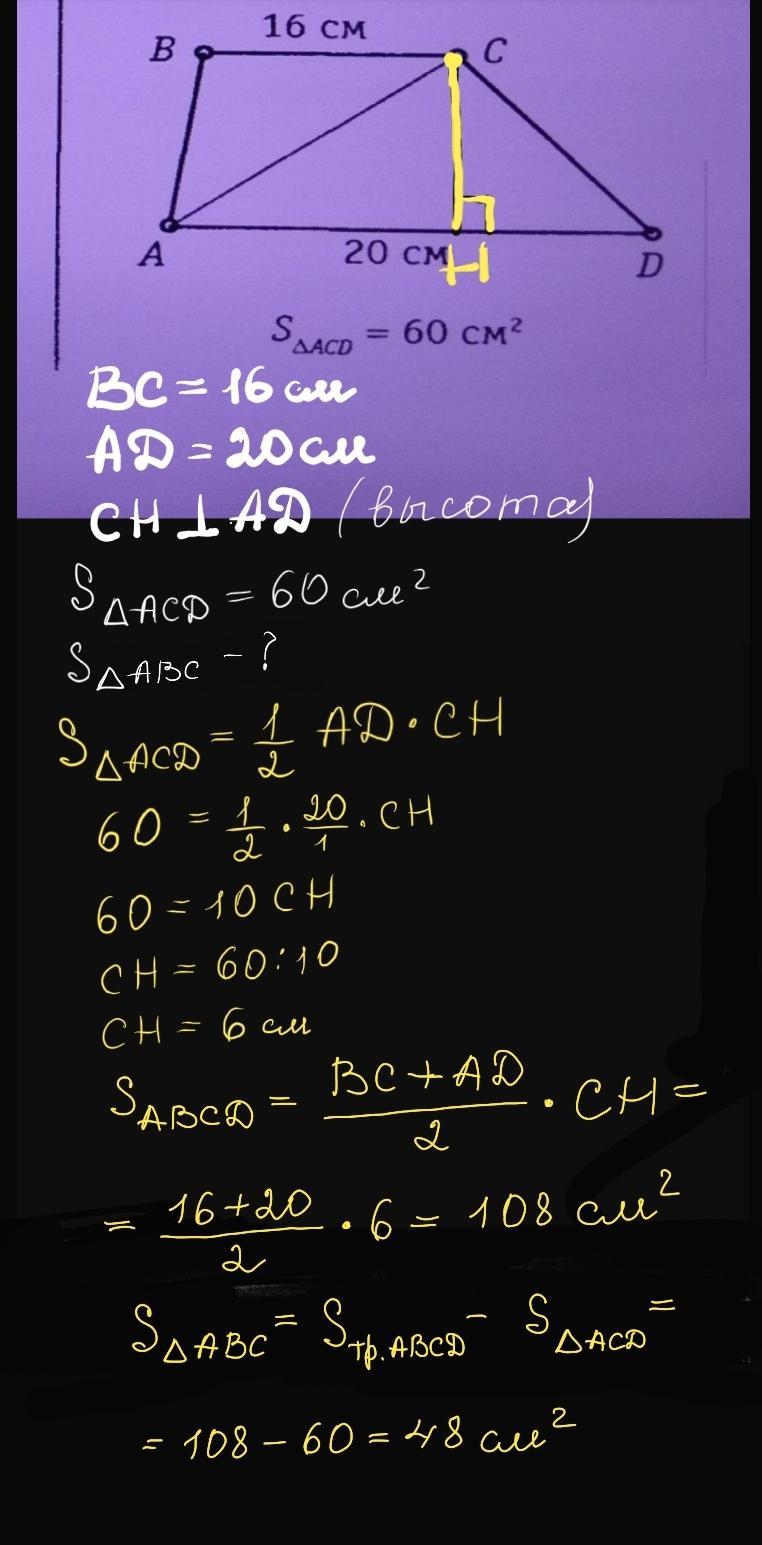 16 см
B
C
A
20 см
H
D
S△ACD = 60 см²
BC = 16 см
AD = 20 см
CH ⊥ AD (высота)
S△ACD = 60 см²
S△ABC - ?
S△ACD = 1/2 AD · CH
60 = 1/2 · 20/1 · CH
60 = 10 CH
CH = 60 : 10
CH = 6 см
SABCD = (BC + AD)/2 · CH =
= (16 + 20)/2 · 6 = 108 см²
S△ABC = Sтр.ABCD - S△ACD =
= 108 - 60 = 48 см²